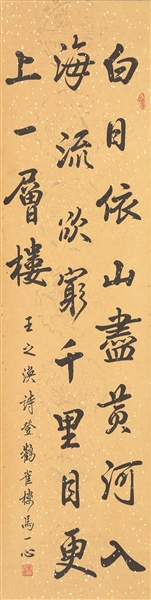 白日依山盡黃河入
海流欲窮千里目更
上一層樓
王之渙詩登鸛雀樓馬一心